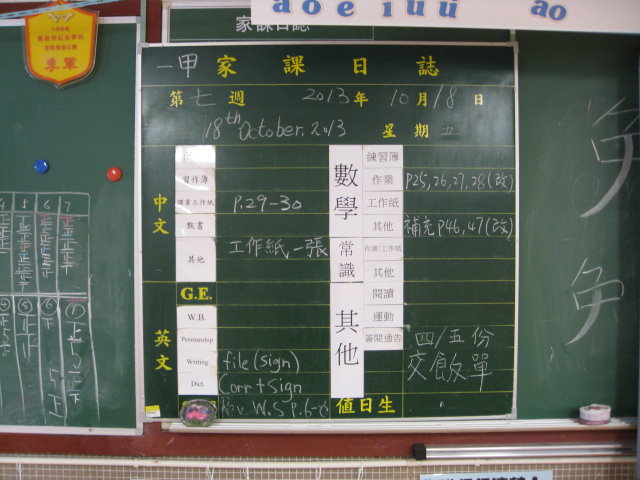 a o e i u ü ao
家課日誌
季軍
一甲家課日誌
第七週 2013年10月18日
18th October, 2013 星期五
中文
習作簿
課業工作紙 P.29-30
默書
其他 工作紙一張
G.E.
英文
W.B.
Penmanship
Writing file(sign)
Dict. Corr+sign
Rev. W.S P.6-
數學
練習簿
作業 P25,26,27,28(改)
工作紙
其他 補充P46,47(改)
常識
作業/工作紙
其他
其他
閱讀
運動
簽閱通告 四/五份
交飯單
值日生
4 5 6 7
④ ⑤ ⑥ ⑦
免
免